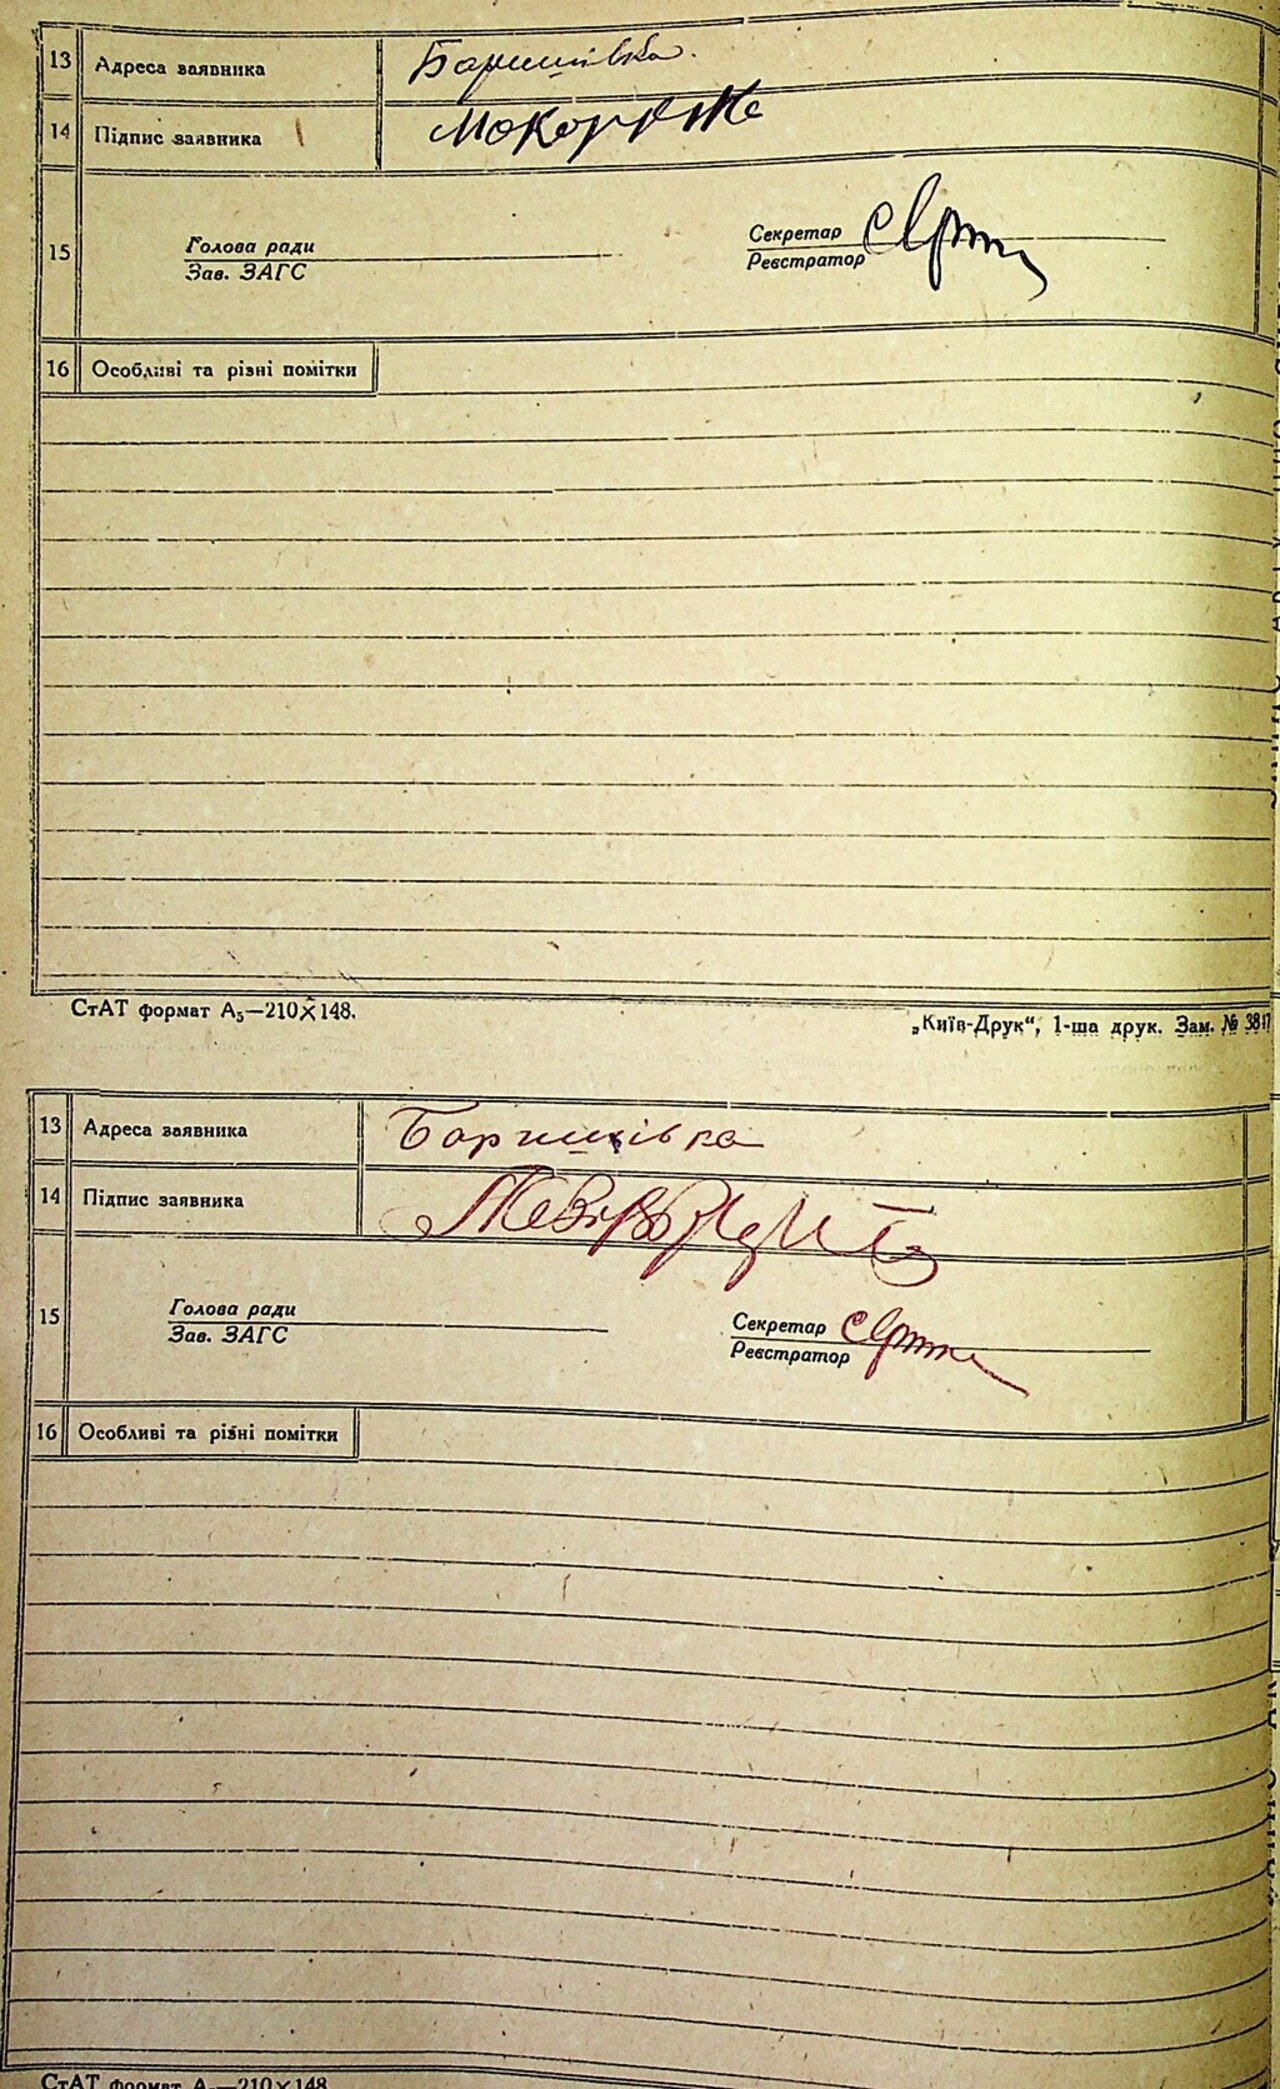 13 Адреса заявника Баришівка.
14 Підпис заявника
15 Голова ради Секретар
Зав. ЗАГС Реєстратор
16 Особливі та різні помітки
СтАТ формат А₅—210×148.
„Київ-Друк“, 1-ша друк. Зам. № 3847
13 Адреса заявника Баришівка
14 Підпис заявника
15 Голова ради Секретар
Зав. ЗАГС Реєстратор
16 Особливі та різні помітки
СтАТ формат А₅—210×148